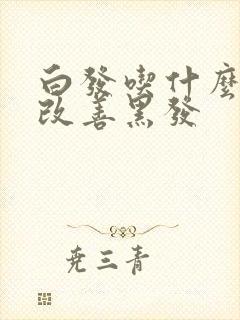 白發喫什麼
改善黑發
堯三青